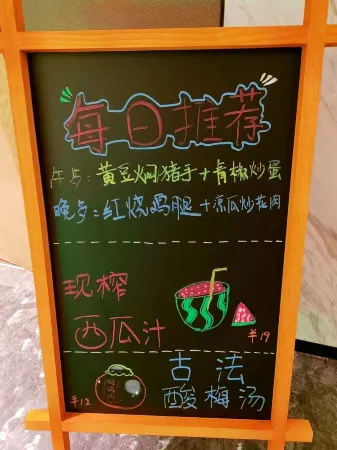 每日推荐
午歺：黄豆焖猪手+青椒炒蛋
晚歺：红烧鸡腿+凉瓜炒花肉
现榨
西瓜汁
¥19
古法
酸梅汤
¥12